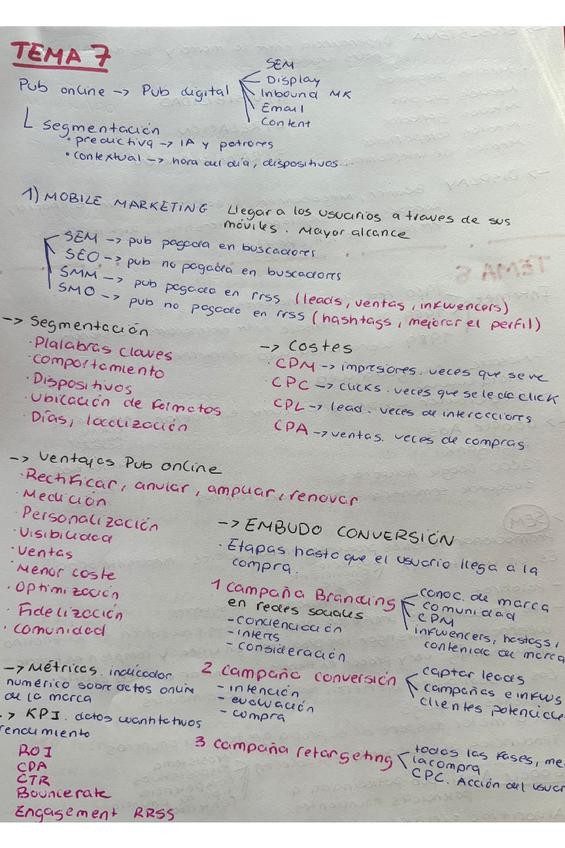 TEMA 7
Pub online -> Pub digital
SEM
Display
Inbound MK
Email
Content
Segmentación
· predictiva -> IA y patrones
· contextual -> hora del día, dispositivos...
1) MOBILE MARKETING Llegar a los usuarios a traves de sus
móviles. Mayor alcance
SEM -> pub pagada en buscadores
SEO -> pub no pagada en buscadores
SMM -> pub pagado en rrss (leads, ventas, inkwencers)
SMO -> pub no pagado en rrss (hashtags, mejorar el perfil)
-> Segmentación
· Plalabras claves
· comportamiento
· Dispositivos
· Ubicación de formatos
· Días, localización
-> Costes
· CPM -> impresores. veces que se ve
· CPC -> clicks. veces que se le da click
CPL -> lead. veces de interecciones
CPA -> ventas. veces de compras
-> Ventajas Pub online
· Rectificar, anular, ampliar, renovar
· Medición
· Personalización
· Visibilidad
· Ventas
· Menor coste
· Optimización
· Fidelización
· comunidad
-> EMBUDO CONVERSIÓN
· Etapas hasta que el usuario llega a la
compra.
1 campaña Branding
en redes sociales
- concienciación
- interés
- consideración
conoc. de marca
comunidad
CPM
inkwencers, hostags,
contenido de marca
2 campaña conversión
- intención
- evaluación
- compra
captar leads
campañas e inkws
clientes potenciale
3 campaña retargeting
todas las fases, me
la compra
CPC. Acción del usuar
-> Métricas. indicador
numérico sobre datos online
de la marca
-> KPI. datos cuantitativos
rendimiento
ROI
CPA
CTR
Bounce rate
Engagement RRSS